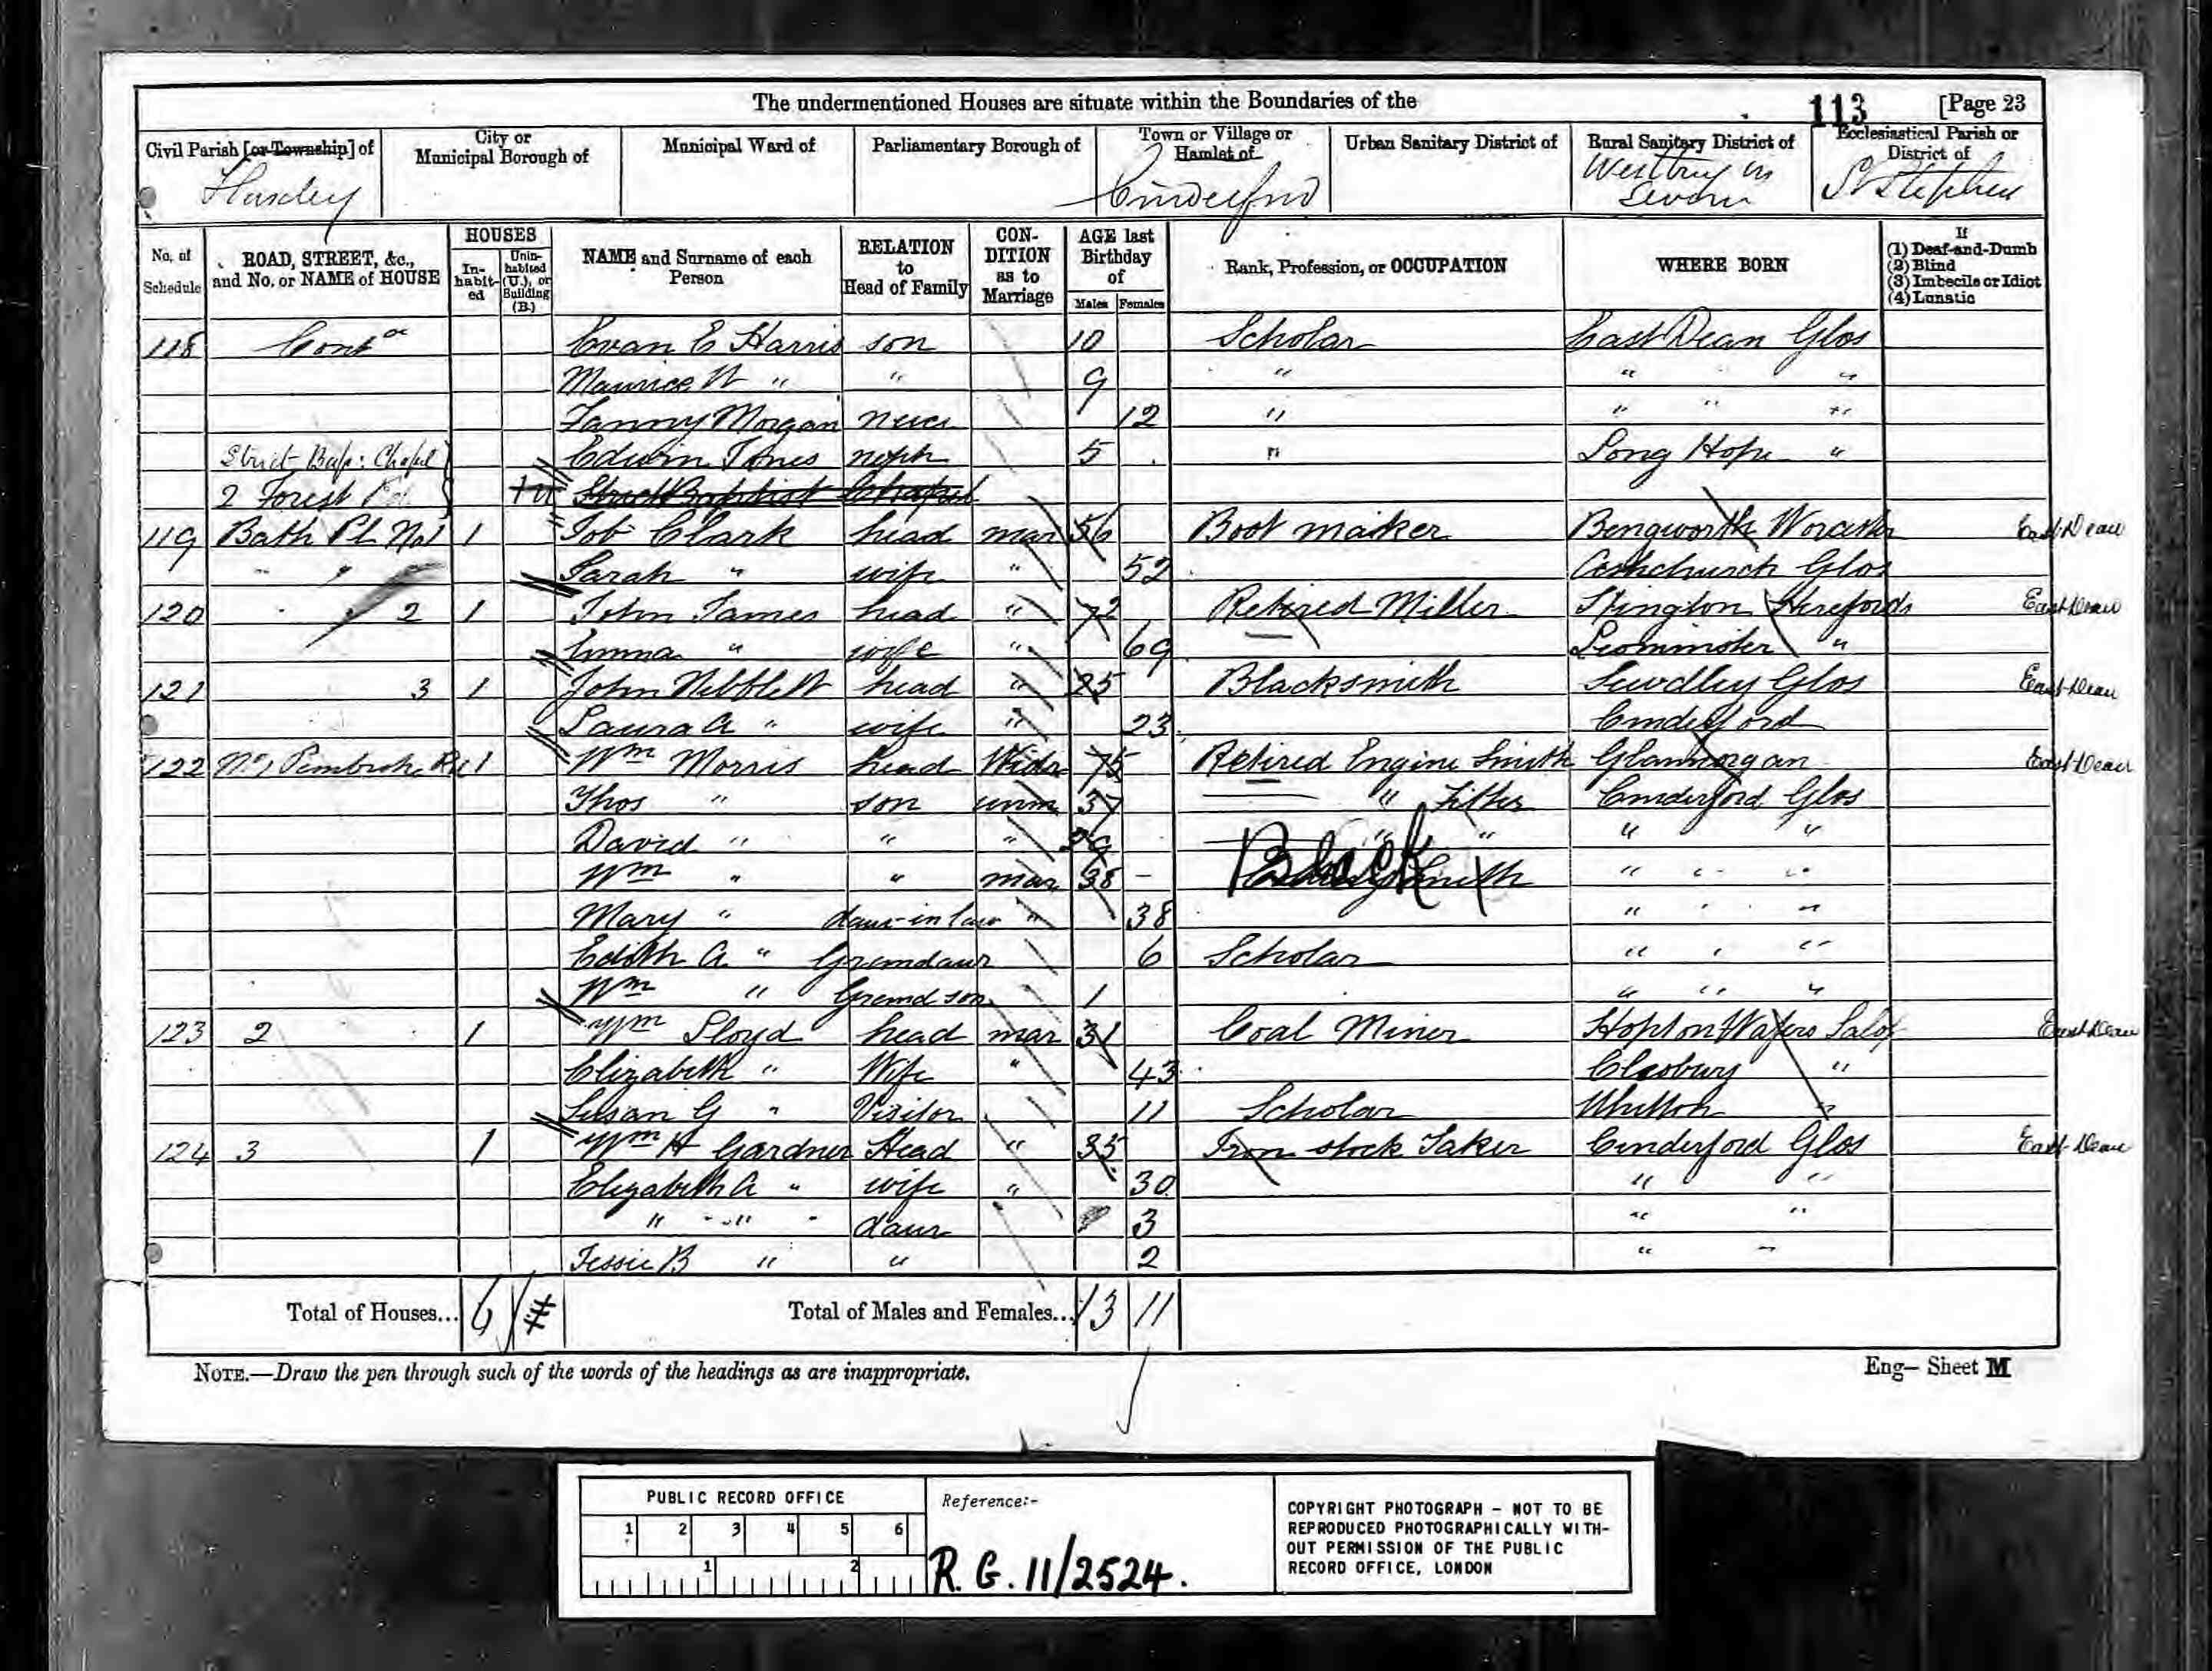 The undermentioned Houses are situate within the Boundaries of the
113 [Page 23
Civil Parish [or Township] of
City or Municipal Borough of
Municipal Ward of
Parliamentary Borough of
Town or Village or Hamlet of
Urban Sanitary District of
Rural Sanitary District of
Ecclesiastical Parish or District of
Cinderford
St Stephen
No. of Schedule
ROAD, STREET, &c., and No. or NAME of HOUSE
HOUSES
In-habit-ed
Unin-habited (U.), or Building (B.)
NAME and Surname of each Person
RELATION to Head of Family
CON-DITION as to Marriage
AGE last Birthday of
Males Females
Rank, Profession, or OCCUPATION
WHERE BORN
If
(1) Deaf-and-Dumb
(2) Blind
(3) Imbecile or Idiot
(4) Lunatic
118 Evan E Harris son 10 Scholar East Dean Glos
Maurice W " " 9 " " "
Fanny Morgan 12 " " " "
Strict Bap: Chapel Edwin Jones neph 5 " Long Hope "
2 Forest Strict Baptist Chapel
119 Bath Pl No 1 1 Job Clark head mar 56 Boot maker Bengworth East Dean
" " Sarah " wife " 52 Glos
120 " 2 1 John James head " 72 Retired Miller East Dean
Emma " wife " 69 Leominster "
121 3 1 John Niblett head " 25 Blacksmith Glos East Dean
Laura A " wife " 23 Cinderford
122 1 Wm Morris head Widr 75 Retired Engine Smith Glanmorgan East Dean
Thos " son unm 37 " Fitter Cinderford Glos
David " " " " " " "
Wm " " mar 38 Black Smith " " "
Mary " daur-in law " 38 " " "
Edith A. " Grandaur 6 Scholar " " "
Wm " Grand son 1 " " "
123 2 1 Wm Lloyd head mar 31 Coal Miner Hopton Wafers Salop East Dean
Elizabeth " Wife " 43 "
Susan G " Visitor 11 Scholar "
124 3 1 Wm H Gardner Head " 35 Iron stock Taker Cinderford Glos East Dean
Elizabeth A " wife " 30 " "
" " " daur 3 " "
Jessie B " " 2 " "
Total of Houses... 6
Total of Males and Females... 13 11
NOTE.—Draw the pen through such of the words of the headings as are inappropriate.
Eng— Sheet M
PUBLIC RECORD OFFICE
1 2 3 4 5 6
1 2
Reference:-
R.G. 11/2524.
COPYRIGHT PHOTOGRAPH - NOT TO BE
REPRODUCED PHOTOGRAPHICALLY WITH-
OUT PERMISSION OF THE PUBLIC
RECORD OFFICE, LONDON